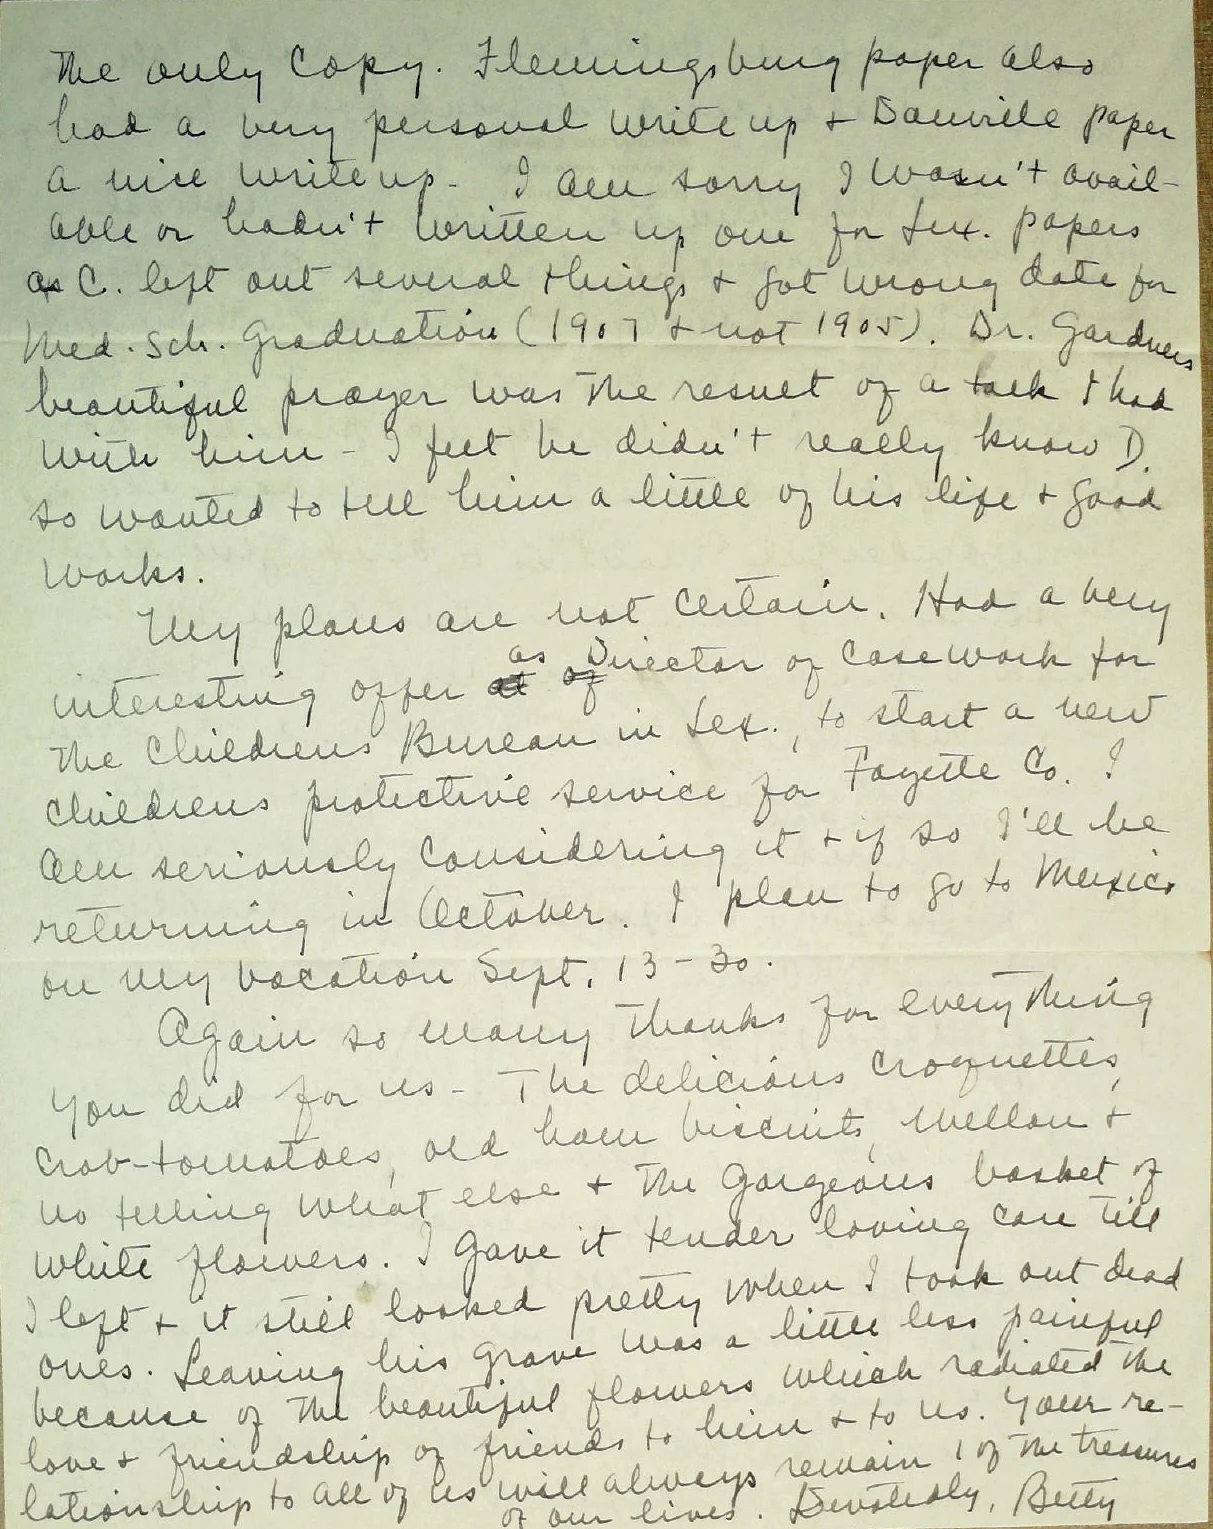 the only copy. Flemingsburg paper also
had a very personal write up + Danville paper
a nice write up - I am sorry I wasn't avail-
able or hadn't written up one for Lex. papers
as C. left out several things + got wrong date for
Med. Sch. graduation (1907 + not 1905). Dr. Gardners
beautiful prayer was the result of a talk I had
with him - I felt he didn't really know D.
so wanted to tell him a little of his life + good
works.
My plans are not certain. Had a very
interesting offer as Director of casework for
the Childrens Bureau in Lex., to start a new
childrens protective service for Fayette Co. I
am seriously considering it + if so I'll be
returning in October. I plan to go to Mexico
on my vacation Sept. 13-30.
Again so many thanks for everything
you did for us - The delicious croquettes,
crab-tomatoes, old ham biscuits, mellon +
no telling what else + the gorgeous basket of
white flowers. I gave it tender loving care till
I left + it still looked pretty when I took out dead
ones. Leaving his grave was a little less painful
because of the beautiful flowers which radiated the
love + friendship of friends to him + to us. Your re-
lationship to all of us will always remain 1 of the treasures
of our lives. Devotedly, Betty